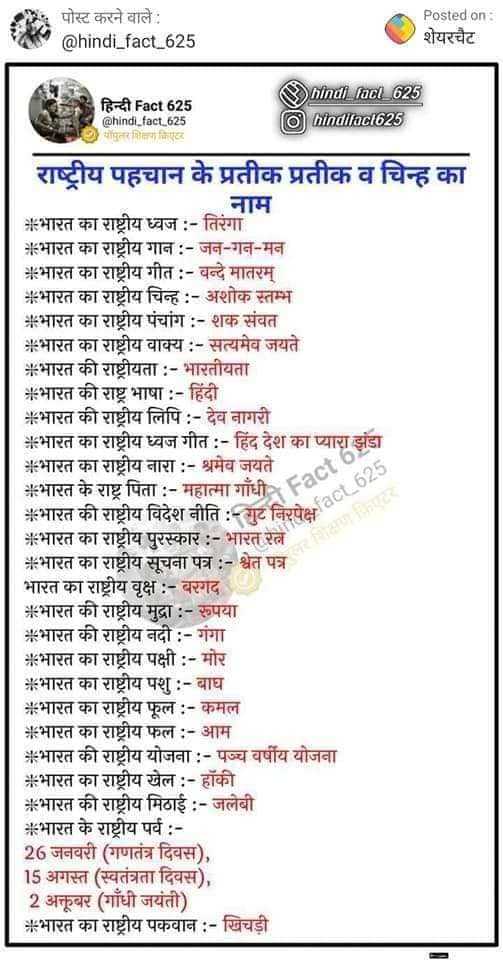 पोस्ट करने वाले :
@hindi_fact_625
Posted on :
शेयरचैट
हिन्दी Fact 625
@hindi_fact_625
पॉपुलर शिक्षण क्रिएटर
hindi_fact_625
hindifact625
राष्ट्रीय पहचान के प्रतीक प्रतीक व चिन्ह का
नाम
*भारत का राष्ट्रीय ध्वज :- तिरंगा
*भारत का राष्ट्रीय गान :- जन-गन-मन
*भारत का राष्ट्रीय गीत :- वन्दे मातरम्
*भारत का राष्ट्रीय चिन्ह :- अशोक स्तम्भ
*भारत का राष्ट्रीय पंचांग :- शक संवत
*भारत का राष्ट्रीय वाक्य :- सत्यमेव जयते
*भारत की राष्ट्रीयता :- भारतीयता
*भारत की राष्ट्र भाषा :- हिंदी
*भारत की राष्ट्रीय लिपि :- देव नागरी
*भारत का राष्ट्रीय ध्वज गीत :- हिंद देश का प्यारा झंडा
*भारत का राष्ट्रीय नारा :- श्रमेव जयते
*भारत के राष्ट्र पिता :- महात्मा गाँधी
*भारत की राष्ट्रीय विदेश नीति :- गुट निरपेक्ष
*भारत का राष्ट्रीय पुरस्कार :- भारत रत्न
*भारत का राष्ट्रीय सूचना पत्र :- श्वेत पत्र
भारत का राष्ट्रीय वृक्ष :- बरगद
*भारत की राष्ट्रीय मुद्रा :- रूपया
*भारत की राष्ट्रीय नदी :- गंगा
*भारत का राष्ट्रीय पक्षी :- मोर
*भारत का राष्ट्रीय पशु :- बाघ
*भारत का राष्ट्रीय फूल :- कमल
*भारत का राष्ट्रीय फल :- आम
*भारत की राष्ट्रीय योजना :- पञ्च वर्षीय योजना
*भारत का राष्ट्रीय खेल :- हॉकी
*भारत की राष्ट्रीय मिठाई :- जलेबी
*भारत के राष्ट्रीय पर्व :-
26 जनवरी (गणतंत्र दिवस),
15 अगस्त (स्वतंत्रता दिवस),
2 अक्तूबर (गाँधी जयंती)
*भारत का राष्ट्रीय पकवान :- खिचड़ी